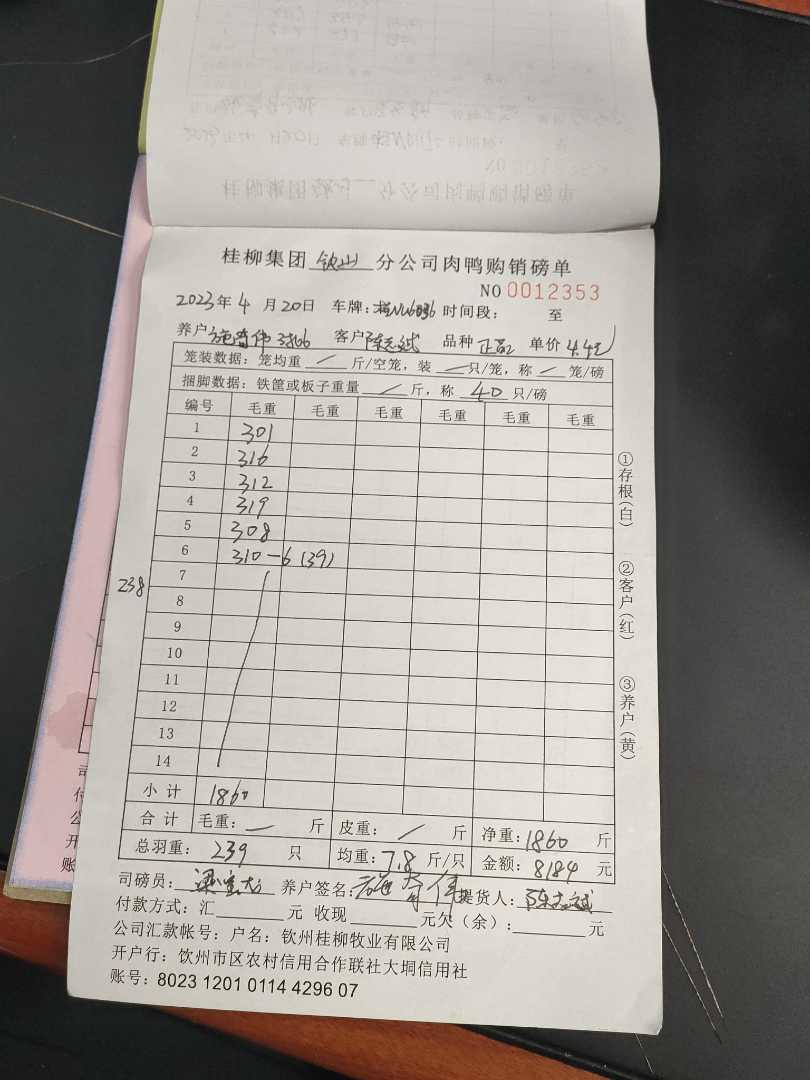 桂柳集团 钦州 分公司肉鸭购销磅单
NO 0012353
2023年 4 月 20日 车牌: 桂NU6836 时间段: 至
养户 客户 陈志斌 品种 正品 单价 4.4元
笼装数据: 笼均重 / 斤/空笼, 装 — 只/笼, 称 / 笼/磅
捆脚数据: 铁筐或板子重量 / 斤, 称 40 只/磅
编号 毛重 毛重 毛重 毛重 毛重 毛重
1 301
2 316
3 312
4 319
5 308
6 310-6 (39)
238
7
8
9
10
11
12
13
14
小计 1860
合计 毛重: — 斤 皮重: / 斤 净重: 1860 斤
总羽重: 239 只 均重: 7.8 斤/只 金额: 8184 元
司磅员: 养户签名: 提货人: 陈志斌
付款方式: 汇 元 收现 元欠(余): 元
公司汇款帐号: 户名: 钦州桂柳牧业有限公司
开户行: 饮州市区农村信用合作联社大垌信用社
账号: 8023 1201 0114 4296 07
①存根(白)
②客户(红)
③养户(黄)